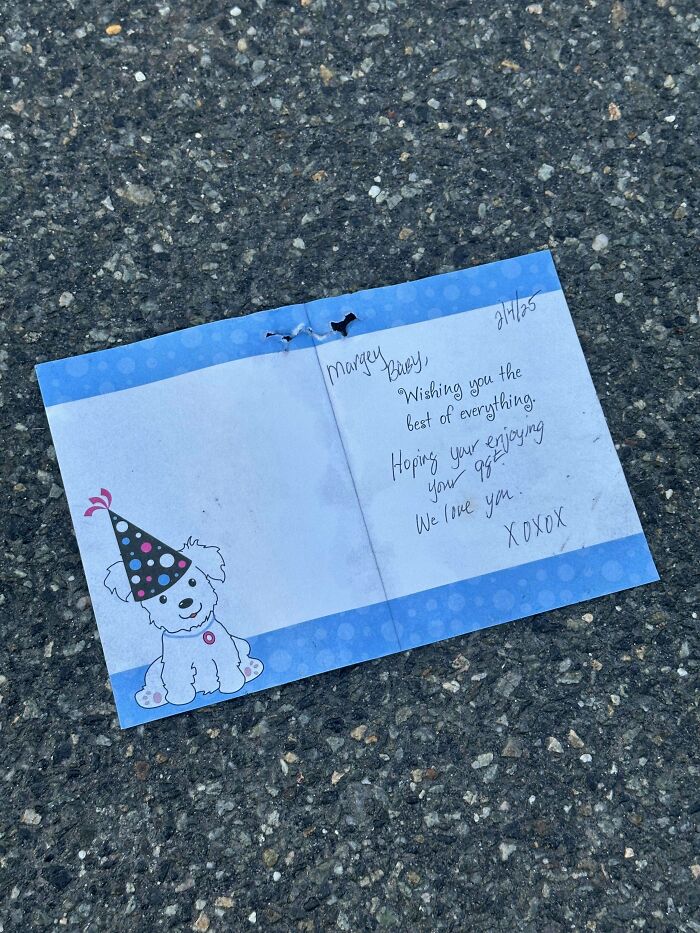 2/4/25
Margey Baby,
Wishing you the
best of everything.
Hoping your enjoying
your 98th.
We love you.
XOXOX